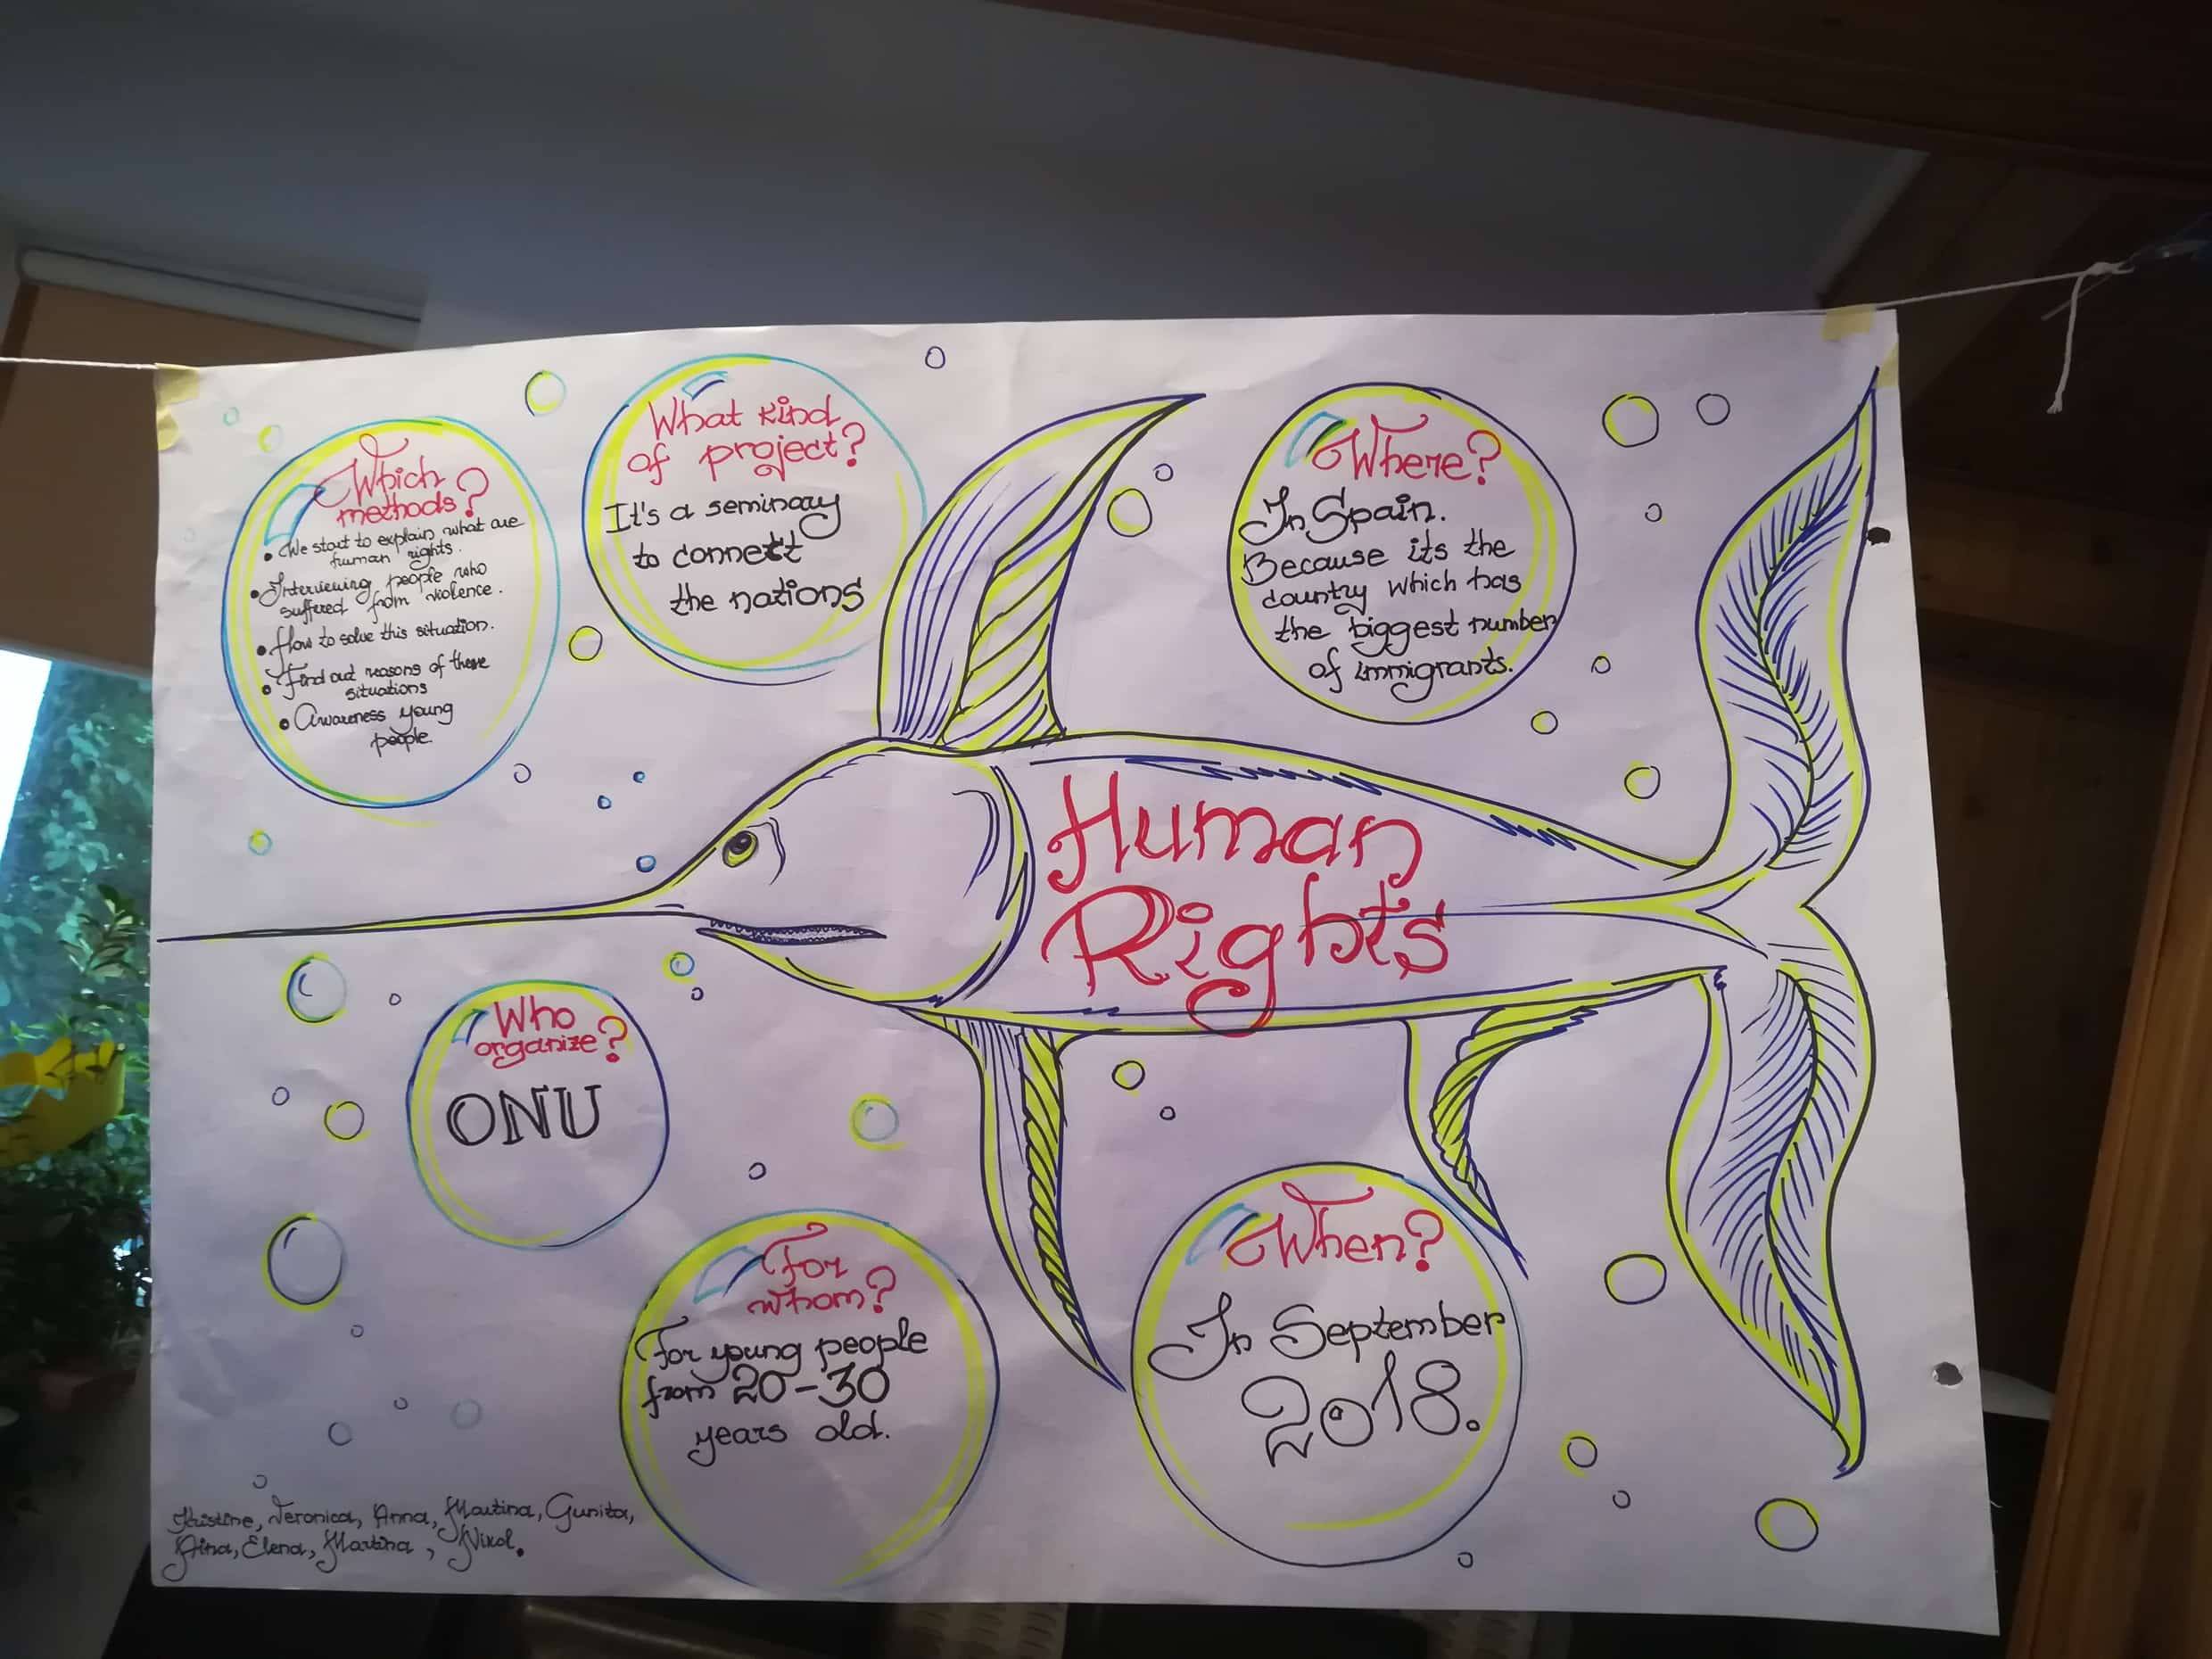 Which
methods?
• We start to explain what are
human rights.
• Interviewing people who
suffered from violence.
• How to solve this situation.
• Find out reasons of these
situations
• Awareness young
people.
What kind
of project?
It's a seminary
to connect
the nations
Where?
In Spain.
Because its the
country which has
the biggest number
of immigrants.
Human
Rights
Who
organize?
ONU
For
whom?
For young people
from 20-30
years old.
When?
In September
2018.
Kristine, Veronica, Anna, Martina, Gunita,
Aina, Elena, Martina, Nikol.